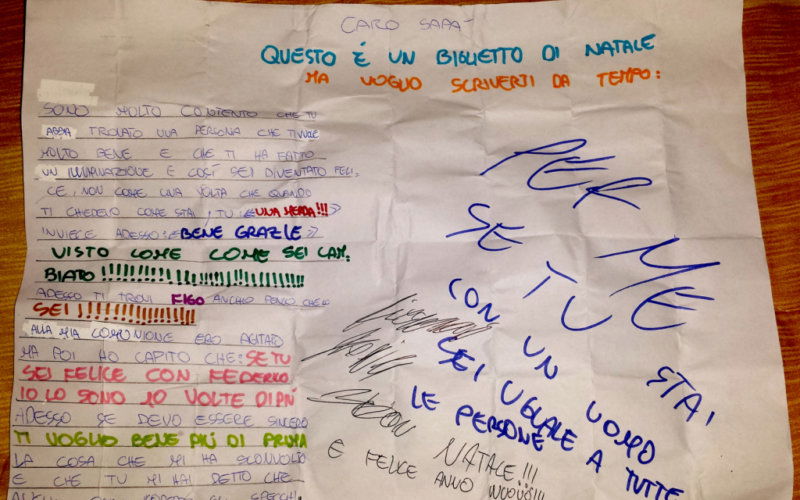 CARO PAPA'
QUESTO È UN BIGLIETTO DI NATALE
MA VOGLIO SCRIVERTI DA TEMPO:
SONO MOLTO CONTENTO CHE TU
ABBIA TROVATO UNA PERSONA CHE TI VUOLE
MOLTO BENE E CHE TI HA FATTO
UN ILLUMINAZIONE E COSÍ SEI DIVENTATO FELI,
CE, NON COME UNA VOLTA CHE QUANDO
TI CHIEDEVO COME STAI, TU: «UNA MERDA!!!»
INVECE ADESSO: «BENE GRAZIE»
VISTO COME COME SEI CAM,
BIATO!!!!!!!!!!!!!!!!!!!!!!!!!!!!
ADESSO TI TROVI FIGO ANCH'IO PENSO CHE LO
SEI!!!!!!!!!!!!!!!!!!!
ALLA MIA COMUNIONE ERO AGITATO
MA POI HO CAPITO CHE: SE TU
SEI FELICE CON FEDERICO
IO LO SONO 10 VOLTE DI PIÚ
ADESSO SE DEVO ESSERE SINCERO
TI VOGLIO BENE PIÚ DI PRIMA
LA COSA CHE MI HA SCONVOLTO
E CHE TU MI HAI DETTO CHE
PER ME
SE TU STAI
CON UN UOMO
SEI UGUALE A TUTTE
LE PERSONE
NATALE!!!
E FELICE ANNO NUOVO!!!